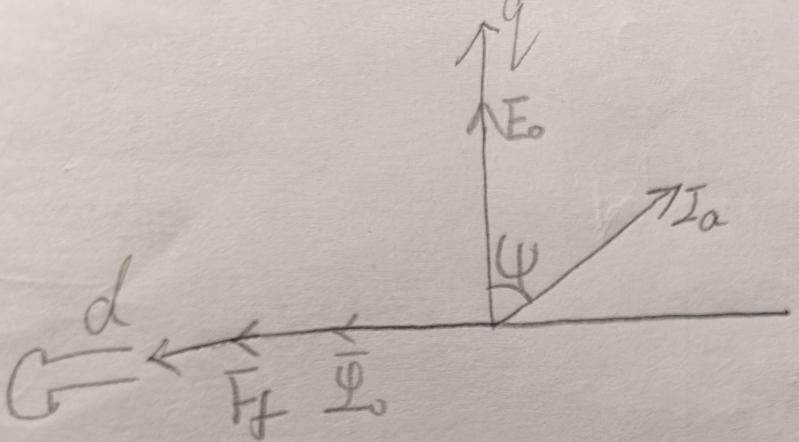 q
E₀
Ψ
Iₐ
d
F̄f
Φ̄₀